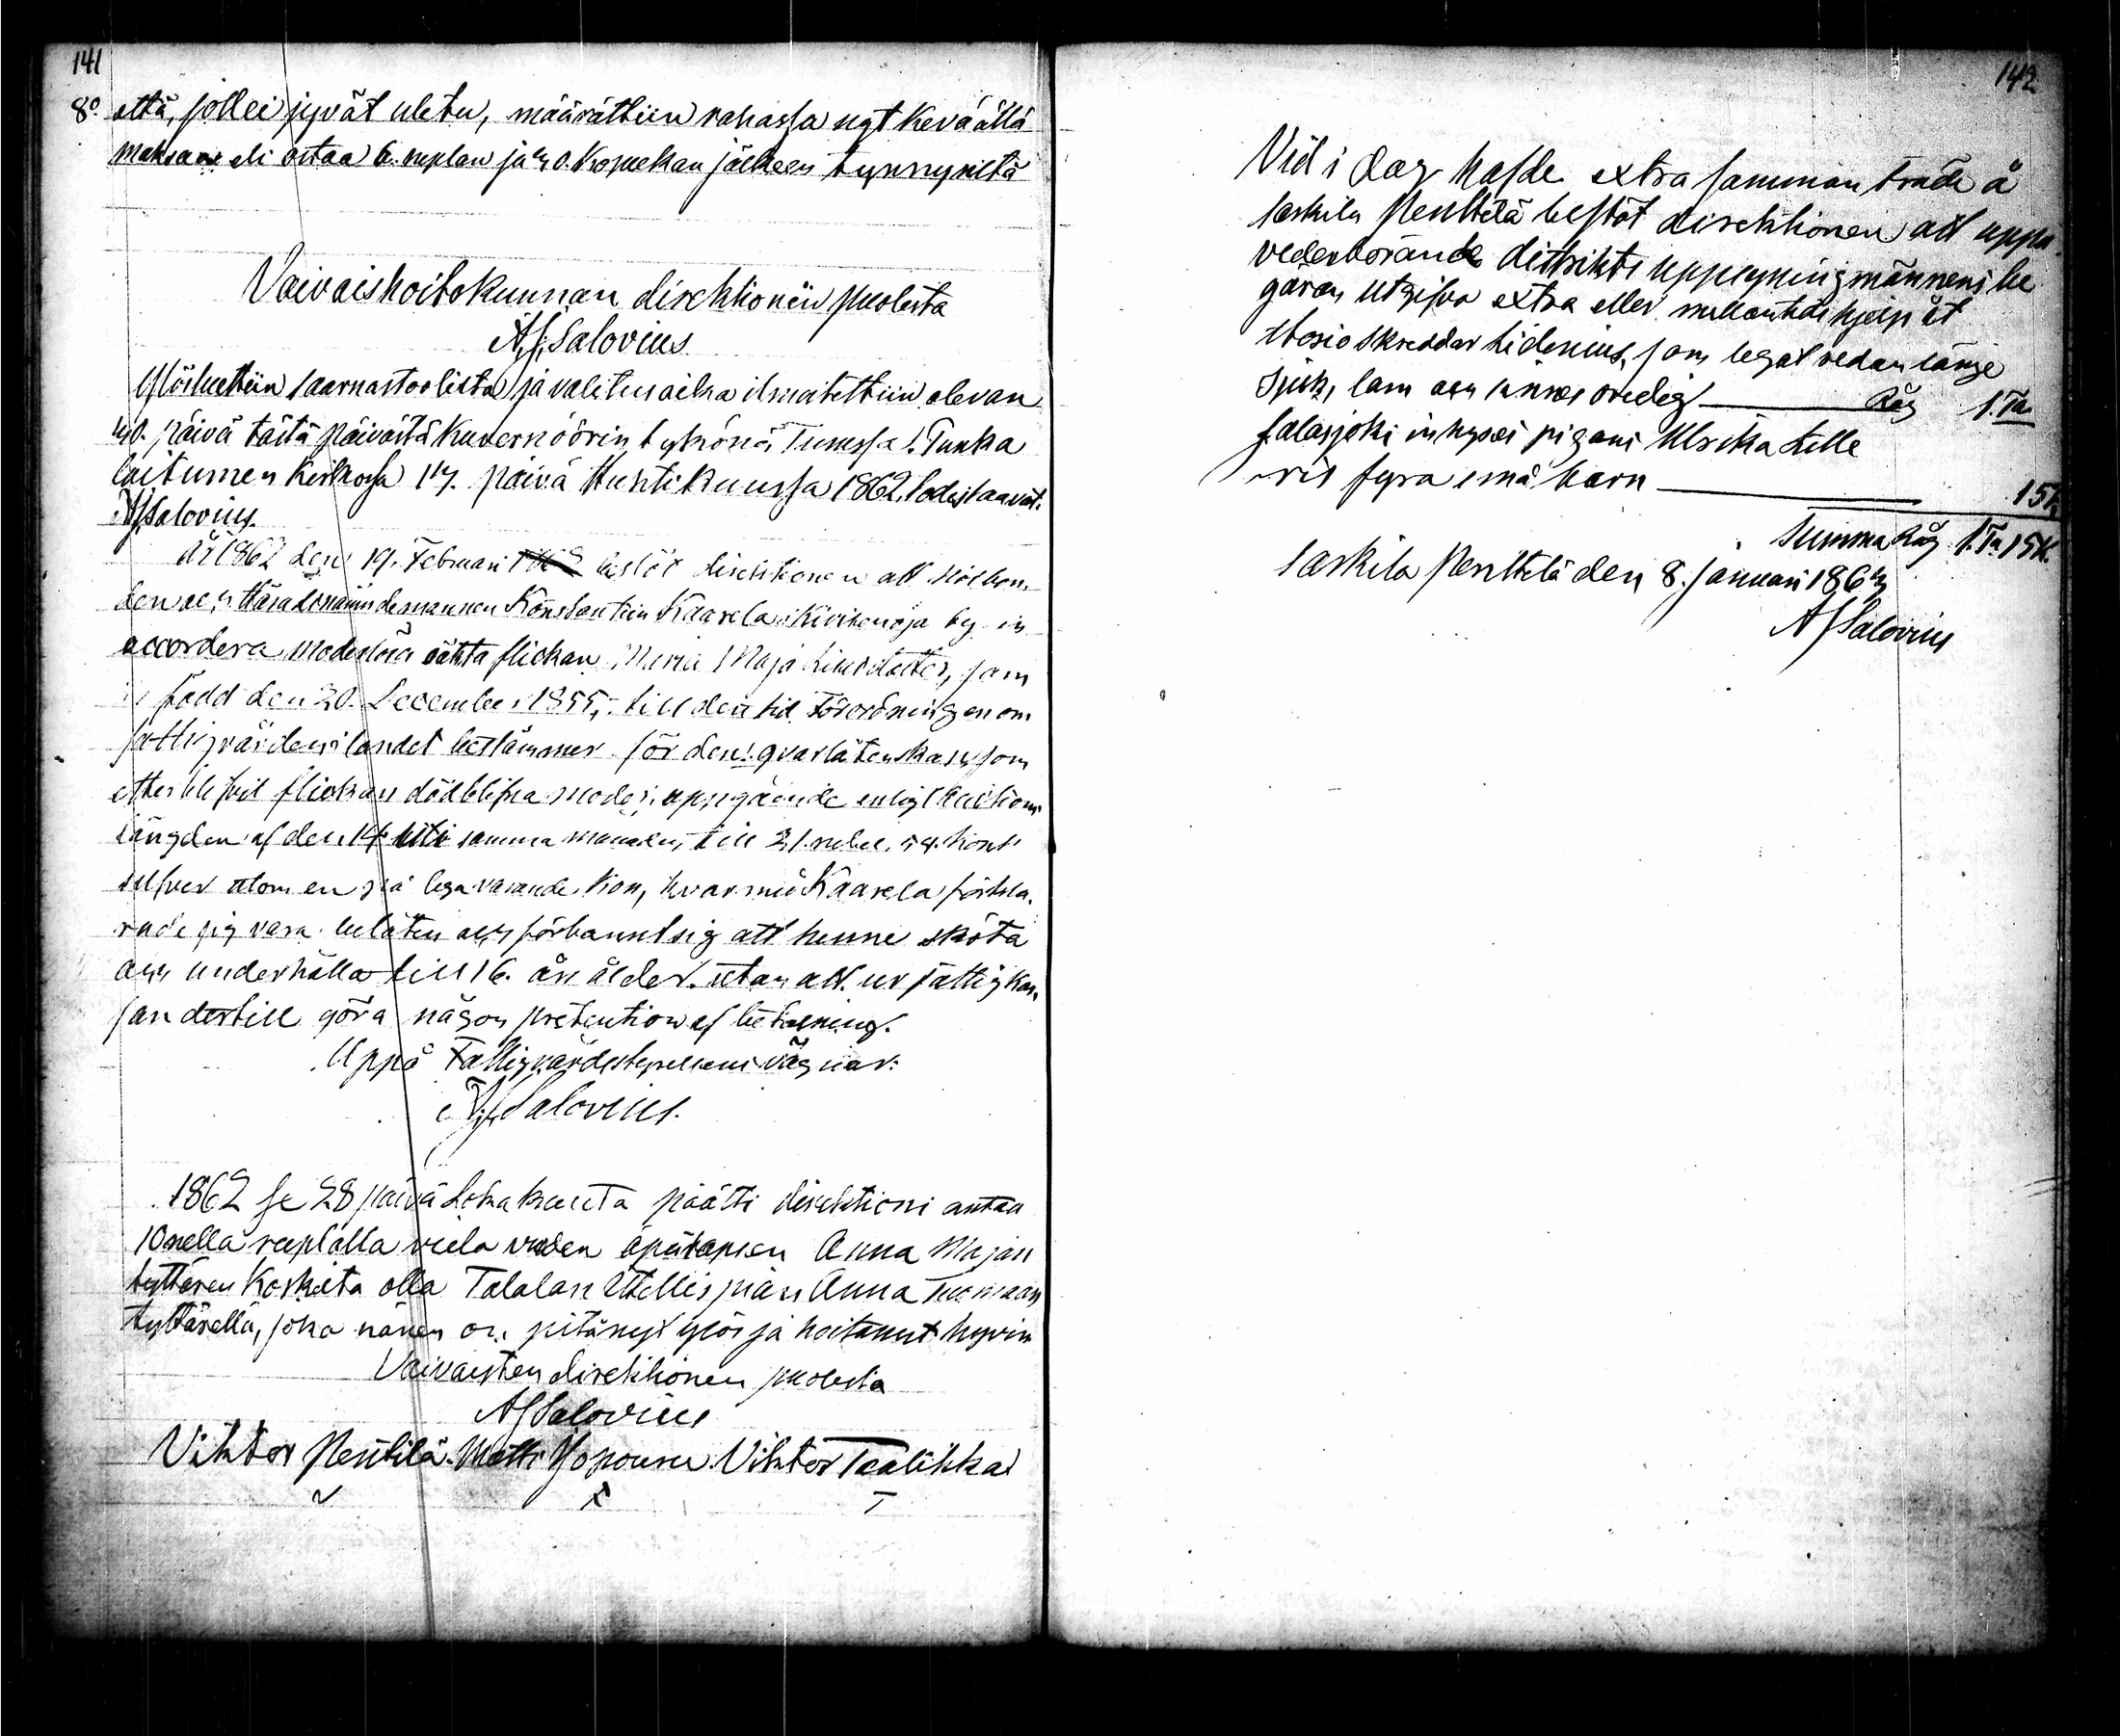 141
8:o että, jollei jyvät uletu, määrättiin rahassa nyt Keväällä
maksaa eli ottaa 6. ruplan ja 30. Kopeekan jälkeen tynnyristä
Vaivaishoitokunnan direktionin puolesta
A.J. Salovius
Ylösluettiin saarnastoolista ja valitusaika ilmoitettiin olevan
30. päivä tästä päivästä Kuvernöörin tykönä Turussa l. Tunka
laitumen Kirkossa 13. päivä Huhtikuussa 1862. Todistaavat.
AJSalovius.
År 1862 den 19. Februari beslöt direktionen att
Häradsnämndemannen Konstantin Kaarela i Kivikenoja by
accordera moderlösa oäkta flickan Maria Maja, som
är född den 20. December 1855, till den tid Förordningen om
fattigvården i landet bestämmer för den qvarlåtenskap som
efterblifvit flickans dödblifna moder, uppgående enligt Auctions
längden af den 14. uti samma månad, till 21. rubel. 54. kop.
silfver utom en på lega varande Ko, hvarmed Kaarela förkla-
rade sig vara belåten och förbannt sig att henne sköta
och underhålla till 16. års ålder. utan att ur fattigkas-
san dertill göra någon prétention af betalning.
Uppå Fattigvårdsstyrelsens vägnar:
A.J. Salovius.
1862 se 28 päivä Lokakuuta päätti direktioni antaa
10nellä ruplalla vielä vuoden äpärälapsen Anna Majan
tyttären Koskelta olla Talalan Itellispiian Anna Tuomaan
tyttärellä, joka hänen on pitänyt ylös ja hoitanut hyvin
Vaivaisten direktionen puolesta
AJSalovius
Vihtor Penttilä. Matti Yöpouru. Vihtor Taalikka
142
Vid i dag hafde extra samman träde å
Laskila Penttilä beslöt direktionen att uppå
vederbörande distrikts uppsyningsmännens be
gäran utgifva extra eller mellantids hjelp åt
skreddar Lidenius, som legat redan länge
sjuk, lam och utfattig Råg 1. Ta.
Salasjoki inhyses pigan Ulrika Lille
vid fyra små barn 15 K.
Summa Råg 1. Ta. 15 K.
Laskila Penttelä den 8. januari 1863
AJSalovius